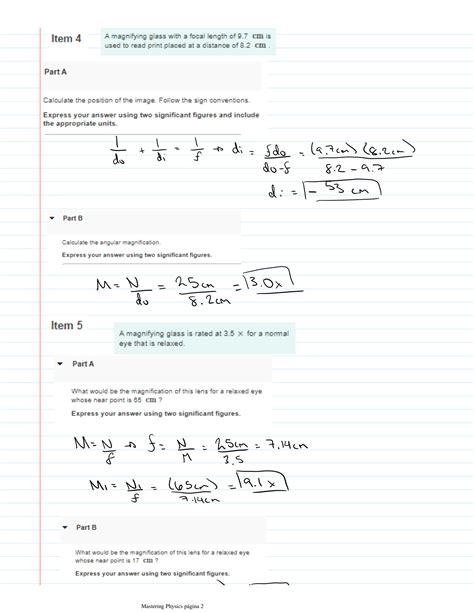 Item 4
A magnifying glass with a focal length of 9.7 cm is
used to read print placed at a distance of 8.2 cm .
Part A
Calculate the position of the image. Follow the sign conventions.
Express your answer using two significant figures and include
the appropriate units.
1/do + 1/di = 1/f → di = fdo/do-f = (9.7cm)(8.2cm)/8.2-9.7
di = -53 cm
Part B
Calculate the angular magnification.
Express your answer using two significant figures.
M = N/do = 25cm/8.2cm = 3.0x
Item 5
A magnifying glass is rated at 3.5 × for a normal
eye that is relaxed.
Part A
What would be the magnification of this lens for a relaxed eye
whose near point is 65 cm ?
Express your answer using two significant figures.
M = N/f → f = N/M = 25cm/3.5 = 7.14cm
M1 = N1/f = (65cm)/7.14cm = 9.1x
Part B
What would be the magnification of this lens for a relaxed eye
whose near point is 17 cm ?
Express your answer using two significant figures.
Mastering Physics página 2